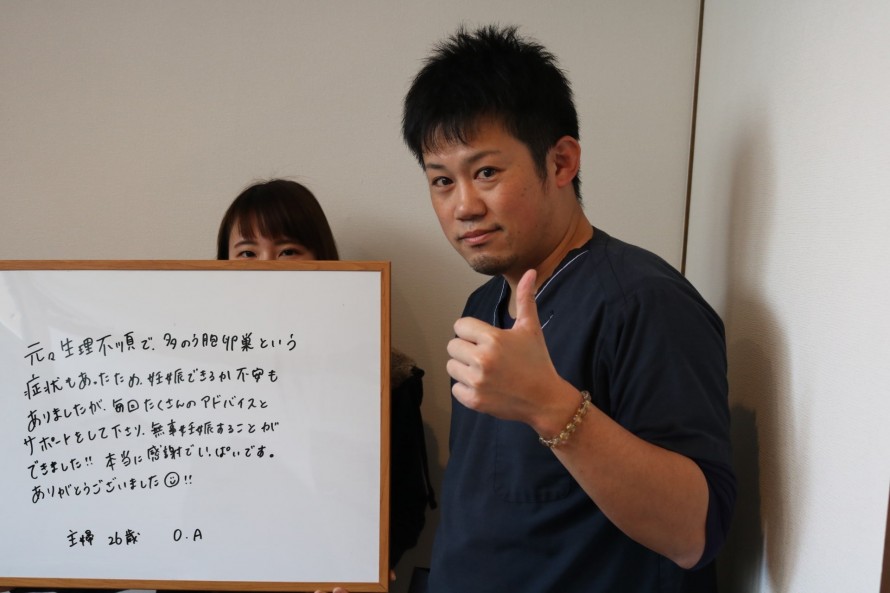 元々生理不順で、多のう胞卵巣という
症状もあったため、妊娠できるか不安も
ありましたが、毎回たくさんのアドバイスと
サポートをして下さり、無事妊娠することが
できました!! 本当に感謝でいっぱいです。
ありがとうございました☺!!
主婦 26歳 O.A